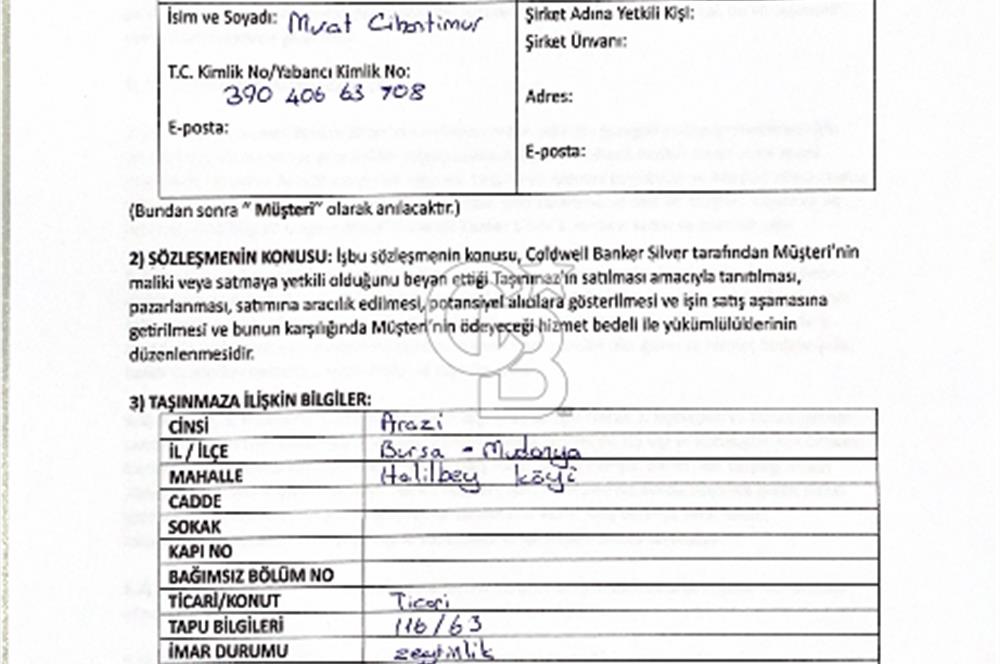 İsim ve Soyadı: Murat Cihastimur
Şirket Adına Yetkili Kişi:
Şirket Ünvanı:
T.C. Kimlik No/Yabancı Kimlik No:
390 406 63 708
Adres:
E-posta:
E-posta:
(Bundan sonra " Müşteri" olarak anılacaktır.)
2) SÖZLEŞMENİN KONUSU: İşbu sözleşmenin konusu, Coldwell Banker Silver tarafından Müşteri'nin
maliki veya satmaya yetkili olduğunu beyan ettiği Taşınmaz'ın satılması amacıyla tanıtılması,
pazarlanması, satımına aracılık edilmesi, potansiyel alıcılara gösterilmesi ve işin satış aşamasına
getirilmesi ve bunun karşılığında Müşteri'nin ödeyeceği hizmet bedeli ile yükümlülüklerinin
düzenlenmesidir.
3) TAŞINMAZA İLİŞKİN BİLGİLER:
CİNSİ Arazi
İL / İLÇE Bursa - Mudanya
MAHALLE Halilbey köyü
CADDE
SOKAK
KAPI NO
BAĞIMSIZ BÖLÜM NO
TİCARİ/KONUT Ticari
TAPU BİLGİLERİ 116/63
İMAR DURUMU zeytinlik